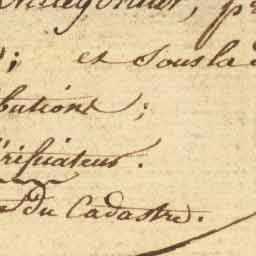 et Sous la
butions;
érificateur.
du Cadastre.